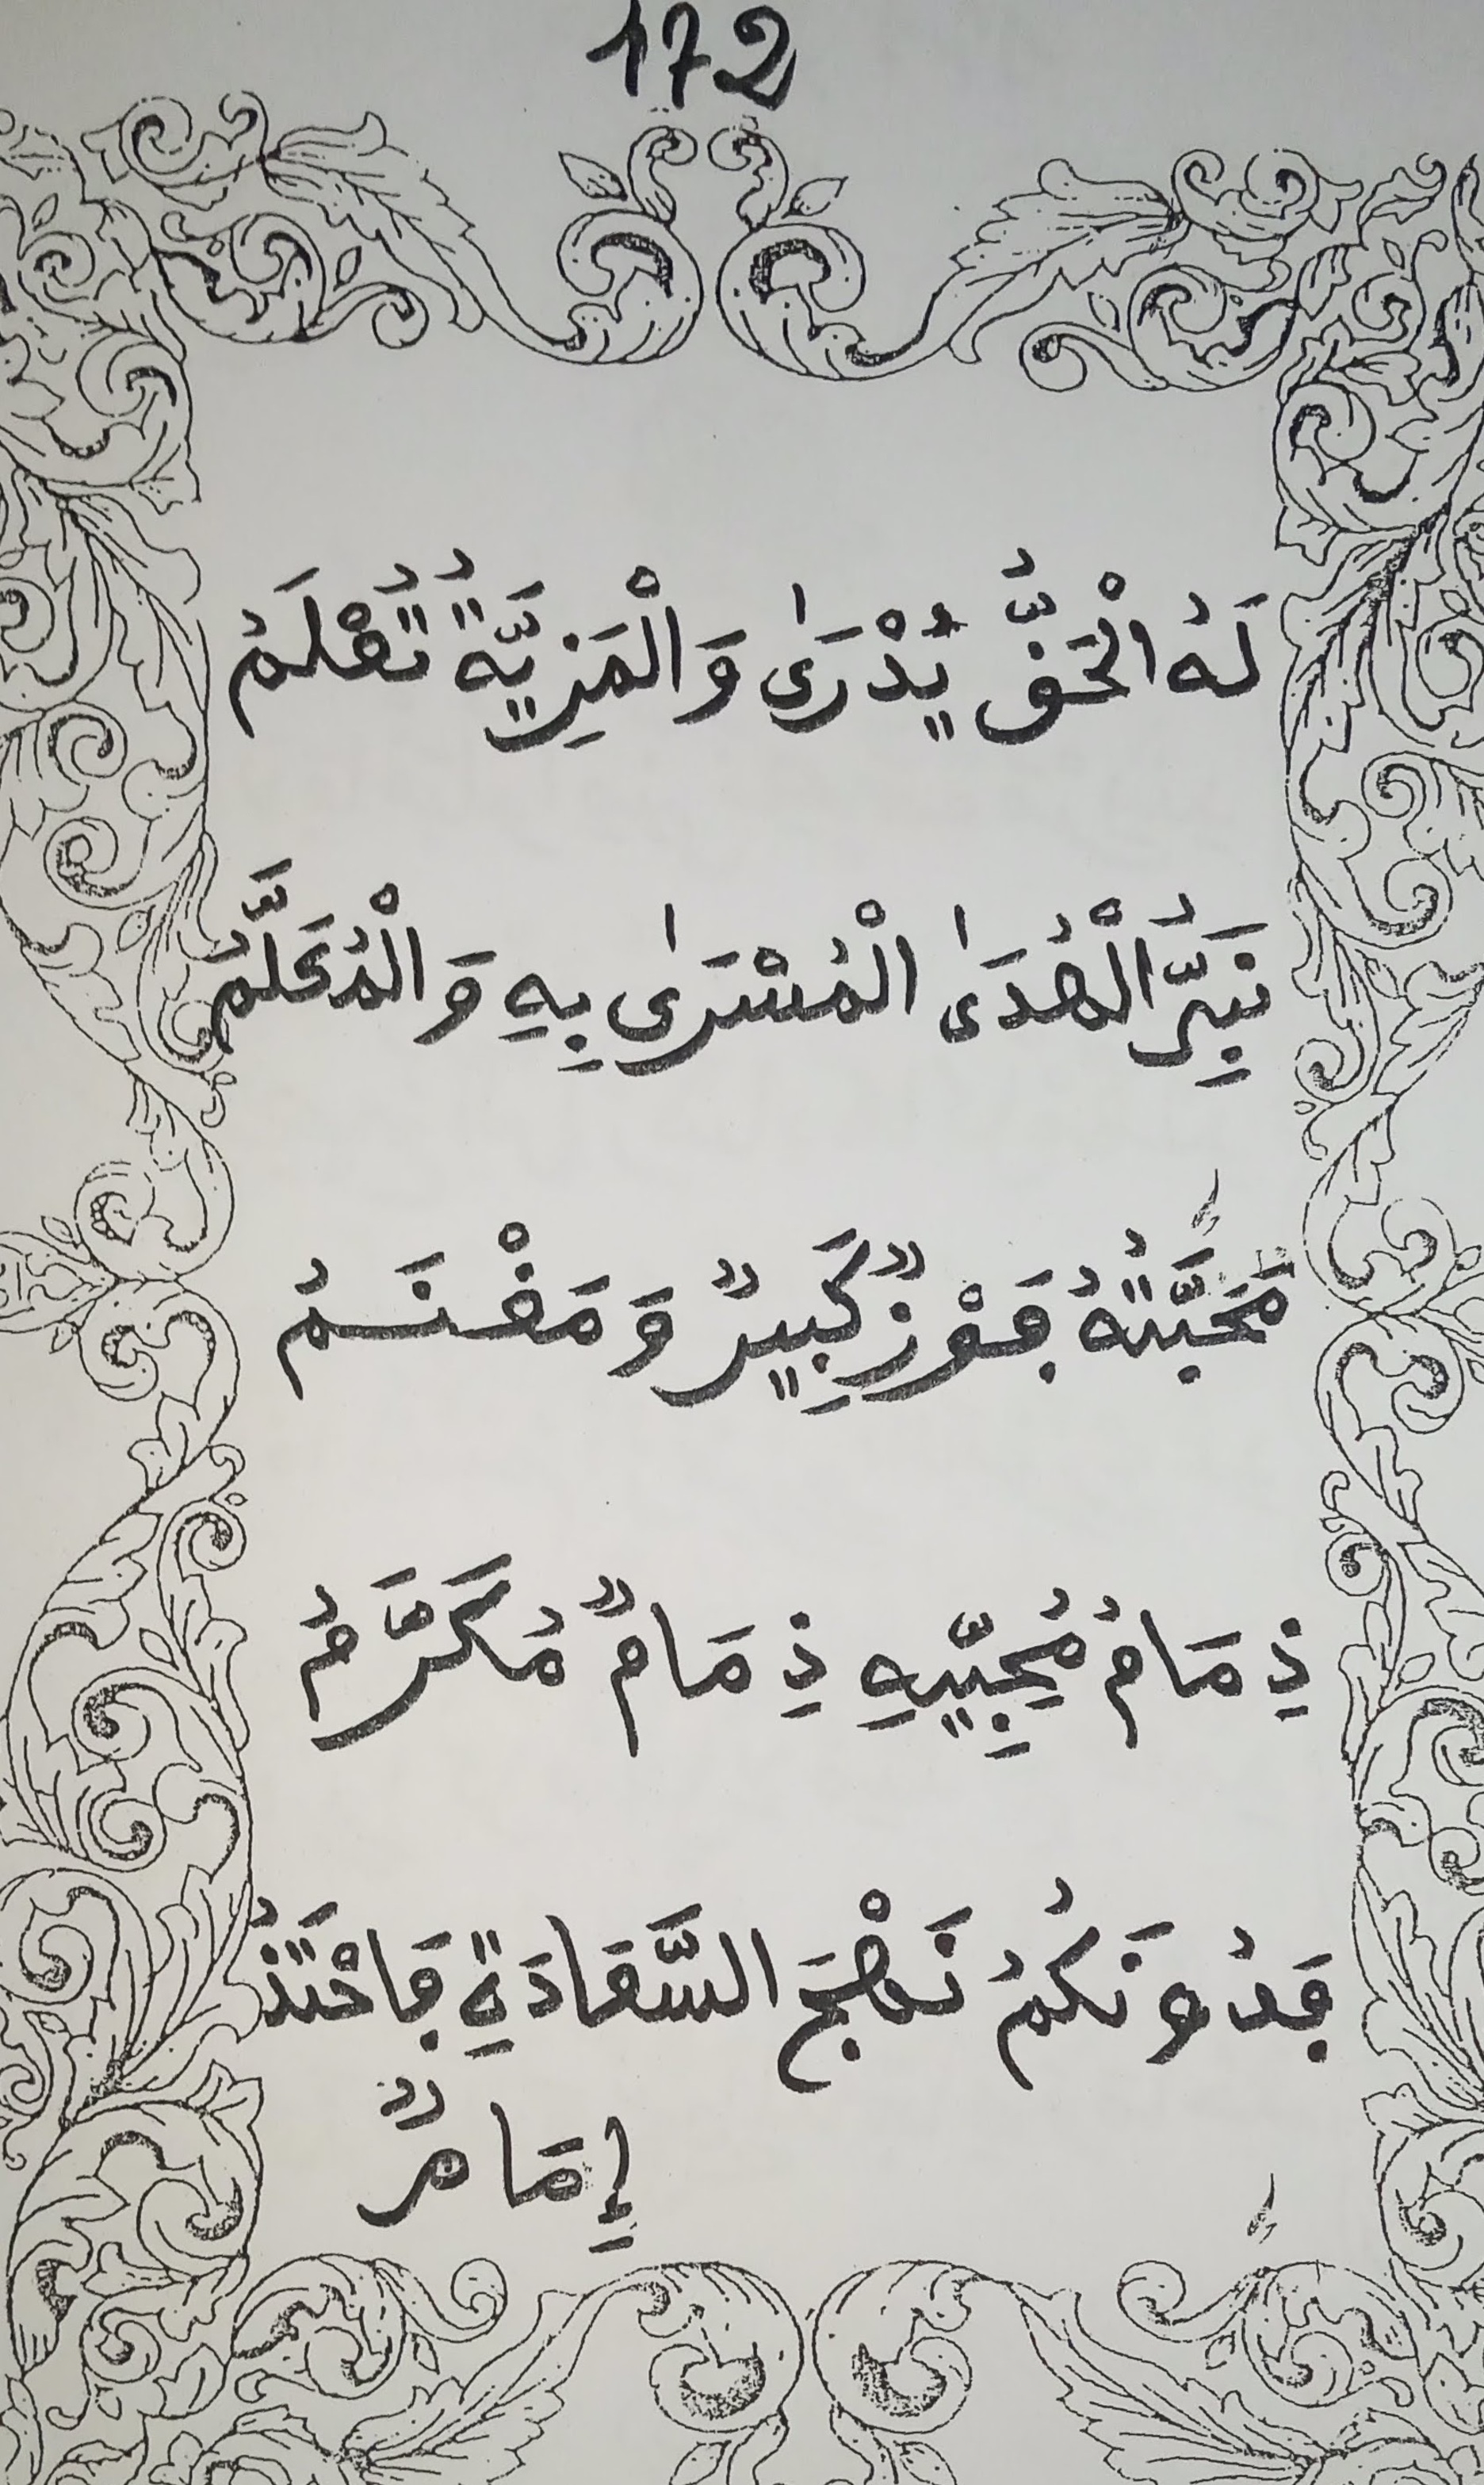 172
لَهُ الْحَقُّ يُدْرَىٰ وَالْمَزِيَّةُ تُعْلَمُ
الْهُدَىٰ بِهِ وَالْمُعَلَّمُ
مَحَبَّتُهُ فَوْزٌ كَبِيرٌ وَمَغْنَمُ
ذِمَامُ مُحِبِّيهِ ذِمَامٌ مُكَرَّمُ
فَدُونَكُمُ نَهْجَ السَّعَادَةِ فَاحْتَذُ
إِمَامٌ